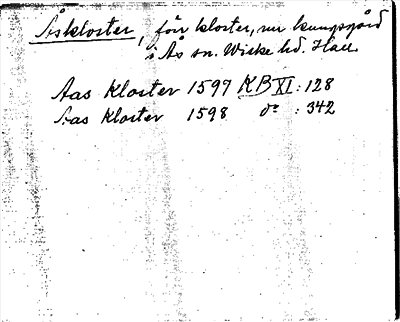 Åskloster, förr kloster, nu kungsgård
i Ås sn. Wiske hd. Hall.
Aas Kloster 1597 KB XI: 128
Aas Kloster 1598 do : 342